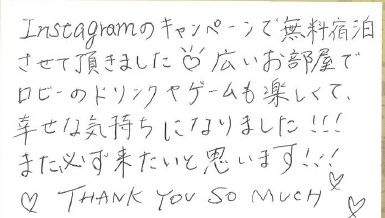 Instagramのキャンペーンで無料宿泊
させて頂きました♡広いお部屋で
ロビーのドリンクやゲームも楽しくて、
幸せな気持ちになりました!!!
また必ず来たいと思います!!!
♡ THANK YOU SO MUCH ♡♡